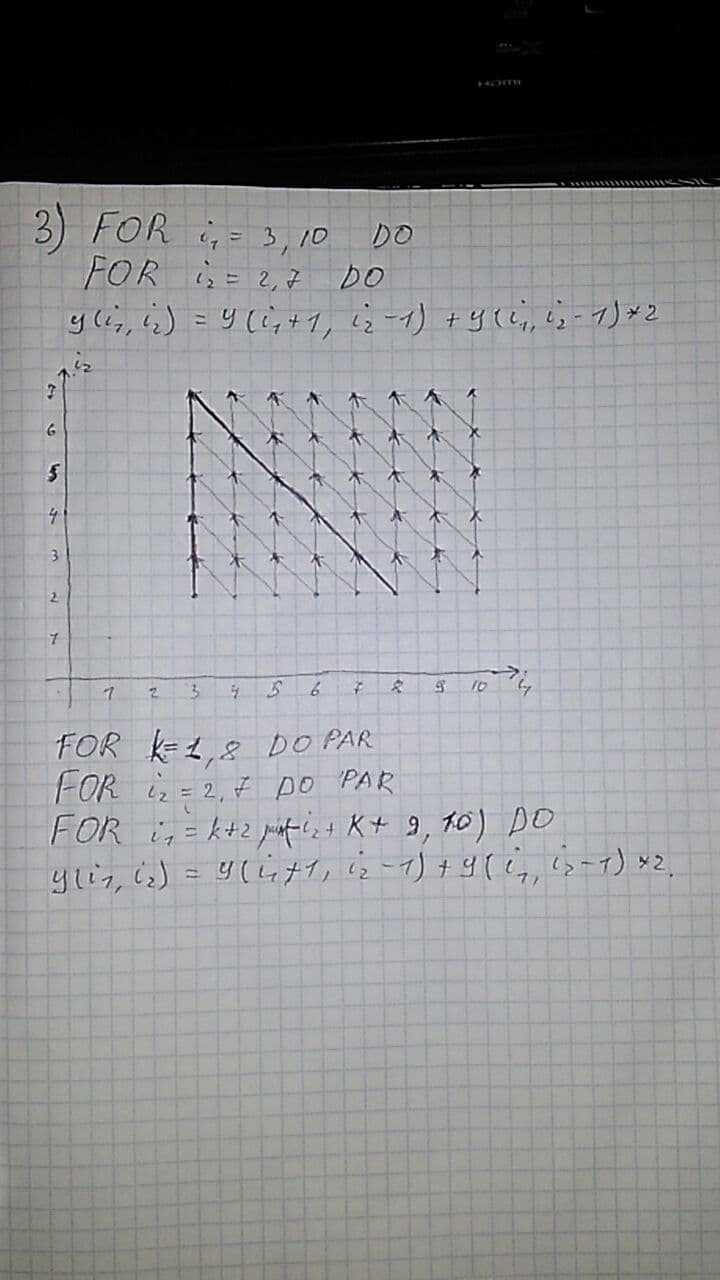 HDMI
3) FOR i₁ = 3, 10 DO
FOR i₂ = 2, 7 DO
y(i₁, i₂) = y(i₁+1, i₂-1) + y(i₁, i₂-1)*2
i₂
7
6
5
4
3
2
1
1 2 3 4 5 6 7 8 9 10 i₁
FOR k=1, 8 DO PAR
FOR i₂ = 2, 7 DO PAR
FOR i₁ = k+2 -i₂ + K + 9, 10) DO
y(i₁, i₂) = y(i₁+1, i₂-1) + y(i₁, i₂-1) *2.